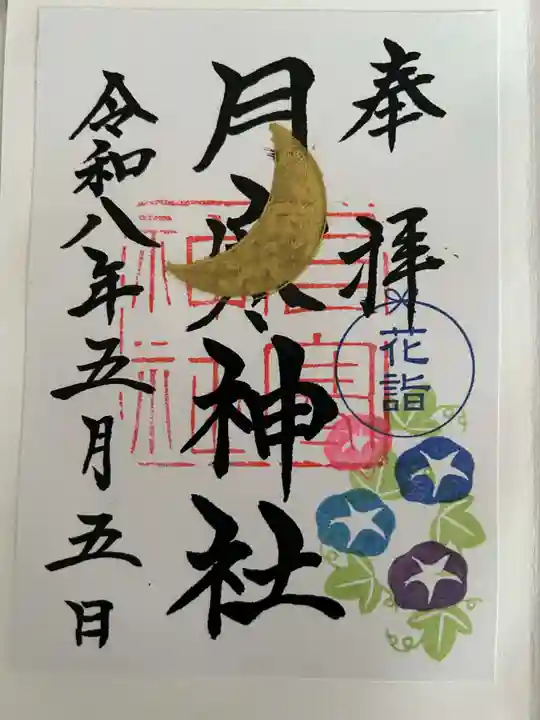 奉拝
月 神社
令和八年五月五日
花詣
神社